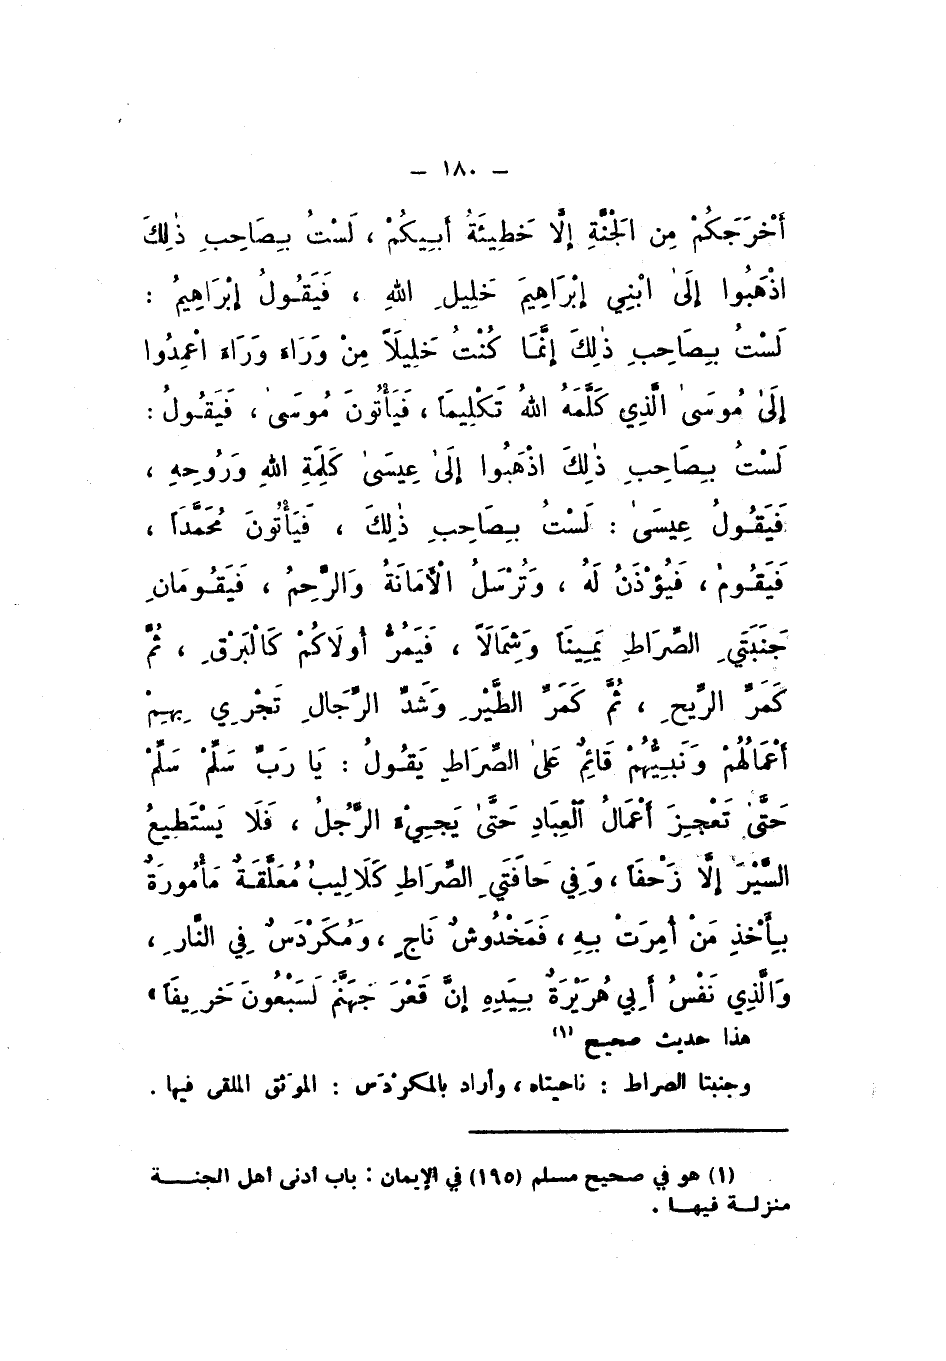 – ١٨٠ –
أَخْرَجَكُمْ مِن الْجَنَّةِ إِلَّا خَطِيئَةُ أَبِيكُمْ ، لَسْتُ بِصَاحِبِ ذٰلِكَ
اذْهَبُوا إِلَىٰ ابْنِي إِبْرَاهِيمَ خَلِيلِ اللهِ ، فَيَقُولُ إِبْرَاهِيمُ :
لَسْتُ بِصَاحِبِ ذٰلِكَ إِنَّمَا كُنْتُ خَلِيلَاً مِنْ وَرَاءَ وَرَاءَ اعْمِدُوا
إِلَىٰ مُوسَىٰ الَّذِي كَلَّمَهُ اللهُ تَكْلِيمَاً ، فَيَأْتُونَ مُوسَىٰ ، فَيَقُولُ :
لَسْتُ بِصَاحِبِ ذٰلِكَ اذْهَبُوا إِلَىٰ عِيسَىٰ كَلِمَةِ اللهِ وَرُوحِهِ ،
فَيَقُولُ عِيسَىٰ : لَسْتُ بِصَاحِبِ ذٰلِكَ ، فَيَأْتُونَ مُحَمَّدَاً ،
فَيَقُومُ ، فَيُؤْذَنُ لَهُ ، وَتُرْسَلُ الْأَمَانَةُ وَالرَّحِمُ ، فَيَقُومَانِ
جَنَبَتَيِ الصِّرَاطِ يَمِينَاً وَشِمَالَاً ، فَيَمُرُّ أُولَاكُمْ كَالْبَرْقِ ، ثُمَّ
كَمَرِّ الرِّيحِ ، ثُمَّ كَمَرِّ الطَّيْرِ وَشَدِّ الرِّجَالِ تَجْرِي بِهِمْ
أَعْمَالُهُمْ وَنَبِيُّهُمْ قَائِمٌ عَلَىٰ الصِّرَاطِ يَقُولُ : يَا رَبِّ سَلِّمْ سَلِّمْ
حَتَّىٰ تَعْجِزَ أَعْمَالُ الْعِبَادِ حَتَّىٰ يَجِيْءَ الرَّجُلُ ، فَلَا يَسْتَطِيعُ
السَّيْرَ إِلَّا زَحْفَاً ، وَفِي حَافَتَيِ الصِّرَاطِ كَلَالِيبُ مُعَلَّقَةٌ مَأْمُورَةٌ
بِأَخْذِ مَنْ أُمِرَتْ بِهِ ، فَمَخْدُوشٌ نَاجٍ ، وَمُكَرْدَسٌ فِي النَّارِ ،
وَالَّذِي نَفْسُ أَبِي هُرَيْرَةَ بِيَدِهِ إِنَّ قَعْرَ جَهَنَّمَ لَسَبْعُونَ خَرِيفَاً »
هذا حديث صحيح (١)
وجنبتا الصراط : ناحيتاه ، وأراد بالمكرْدَس : الموَثق الملقى فيها .
(١) هو في صحيح مسلم (١٩٥) في الإيمان : باب أدنى أهل الجنة
منزلة فيها .